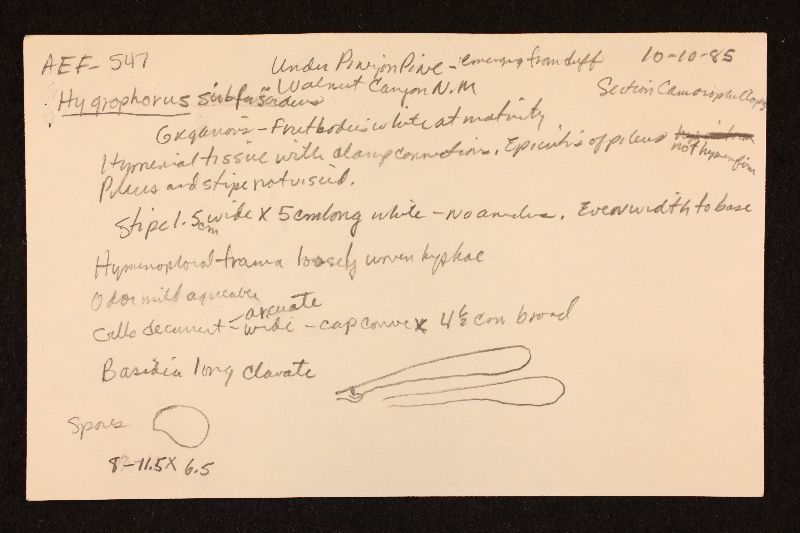 AEF- 547
Under Pinyon Pine - emerging from duff
10-10-85
Walnut Canyon N.M
Section Camarophyllopsis
Hygrophorus
- Fruitbodies white at maturity
Hymenial tissue with clamp connections. Epicutis of pileus not hymeniform
Pileus and stipe not viscid.
Stipe 1.5 cm wide X 5 cm long white - no annulus. Even width to base
Hymenophoral trama loosely woven hyphae
Odor mild agreeable
Gills decurrent - arcuate
wide - cap convex 4½ cm broad
Basidia long clavate
Spores
8-11.5 X 6.5